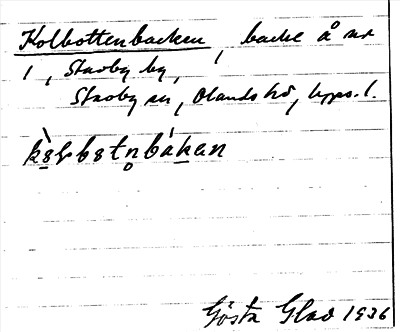 Kolbottenbacken, backe å nr
1, Stavby by,
Stavby sn, Olands hd, Upps. l.
Gösta Glad 1936